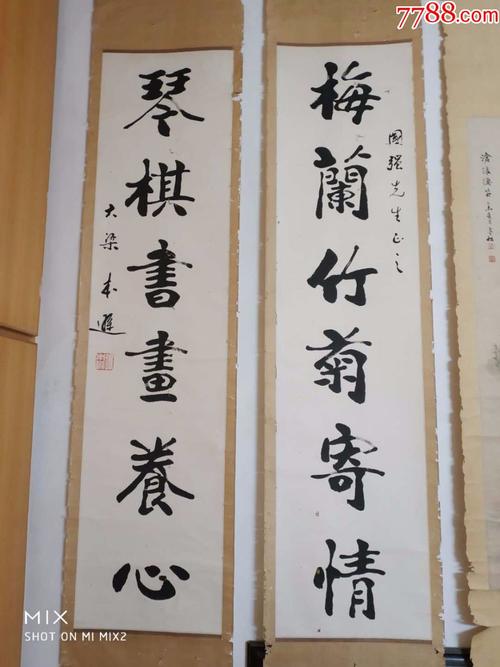 7788.com
梅蘭竹菊寄情
國强先生正之
琴棋書畫養心
大梁
MIX
SHOT ON MI MIX2